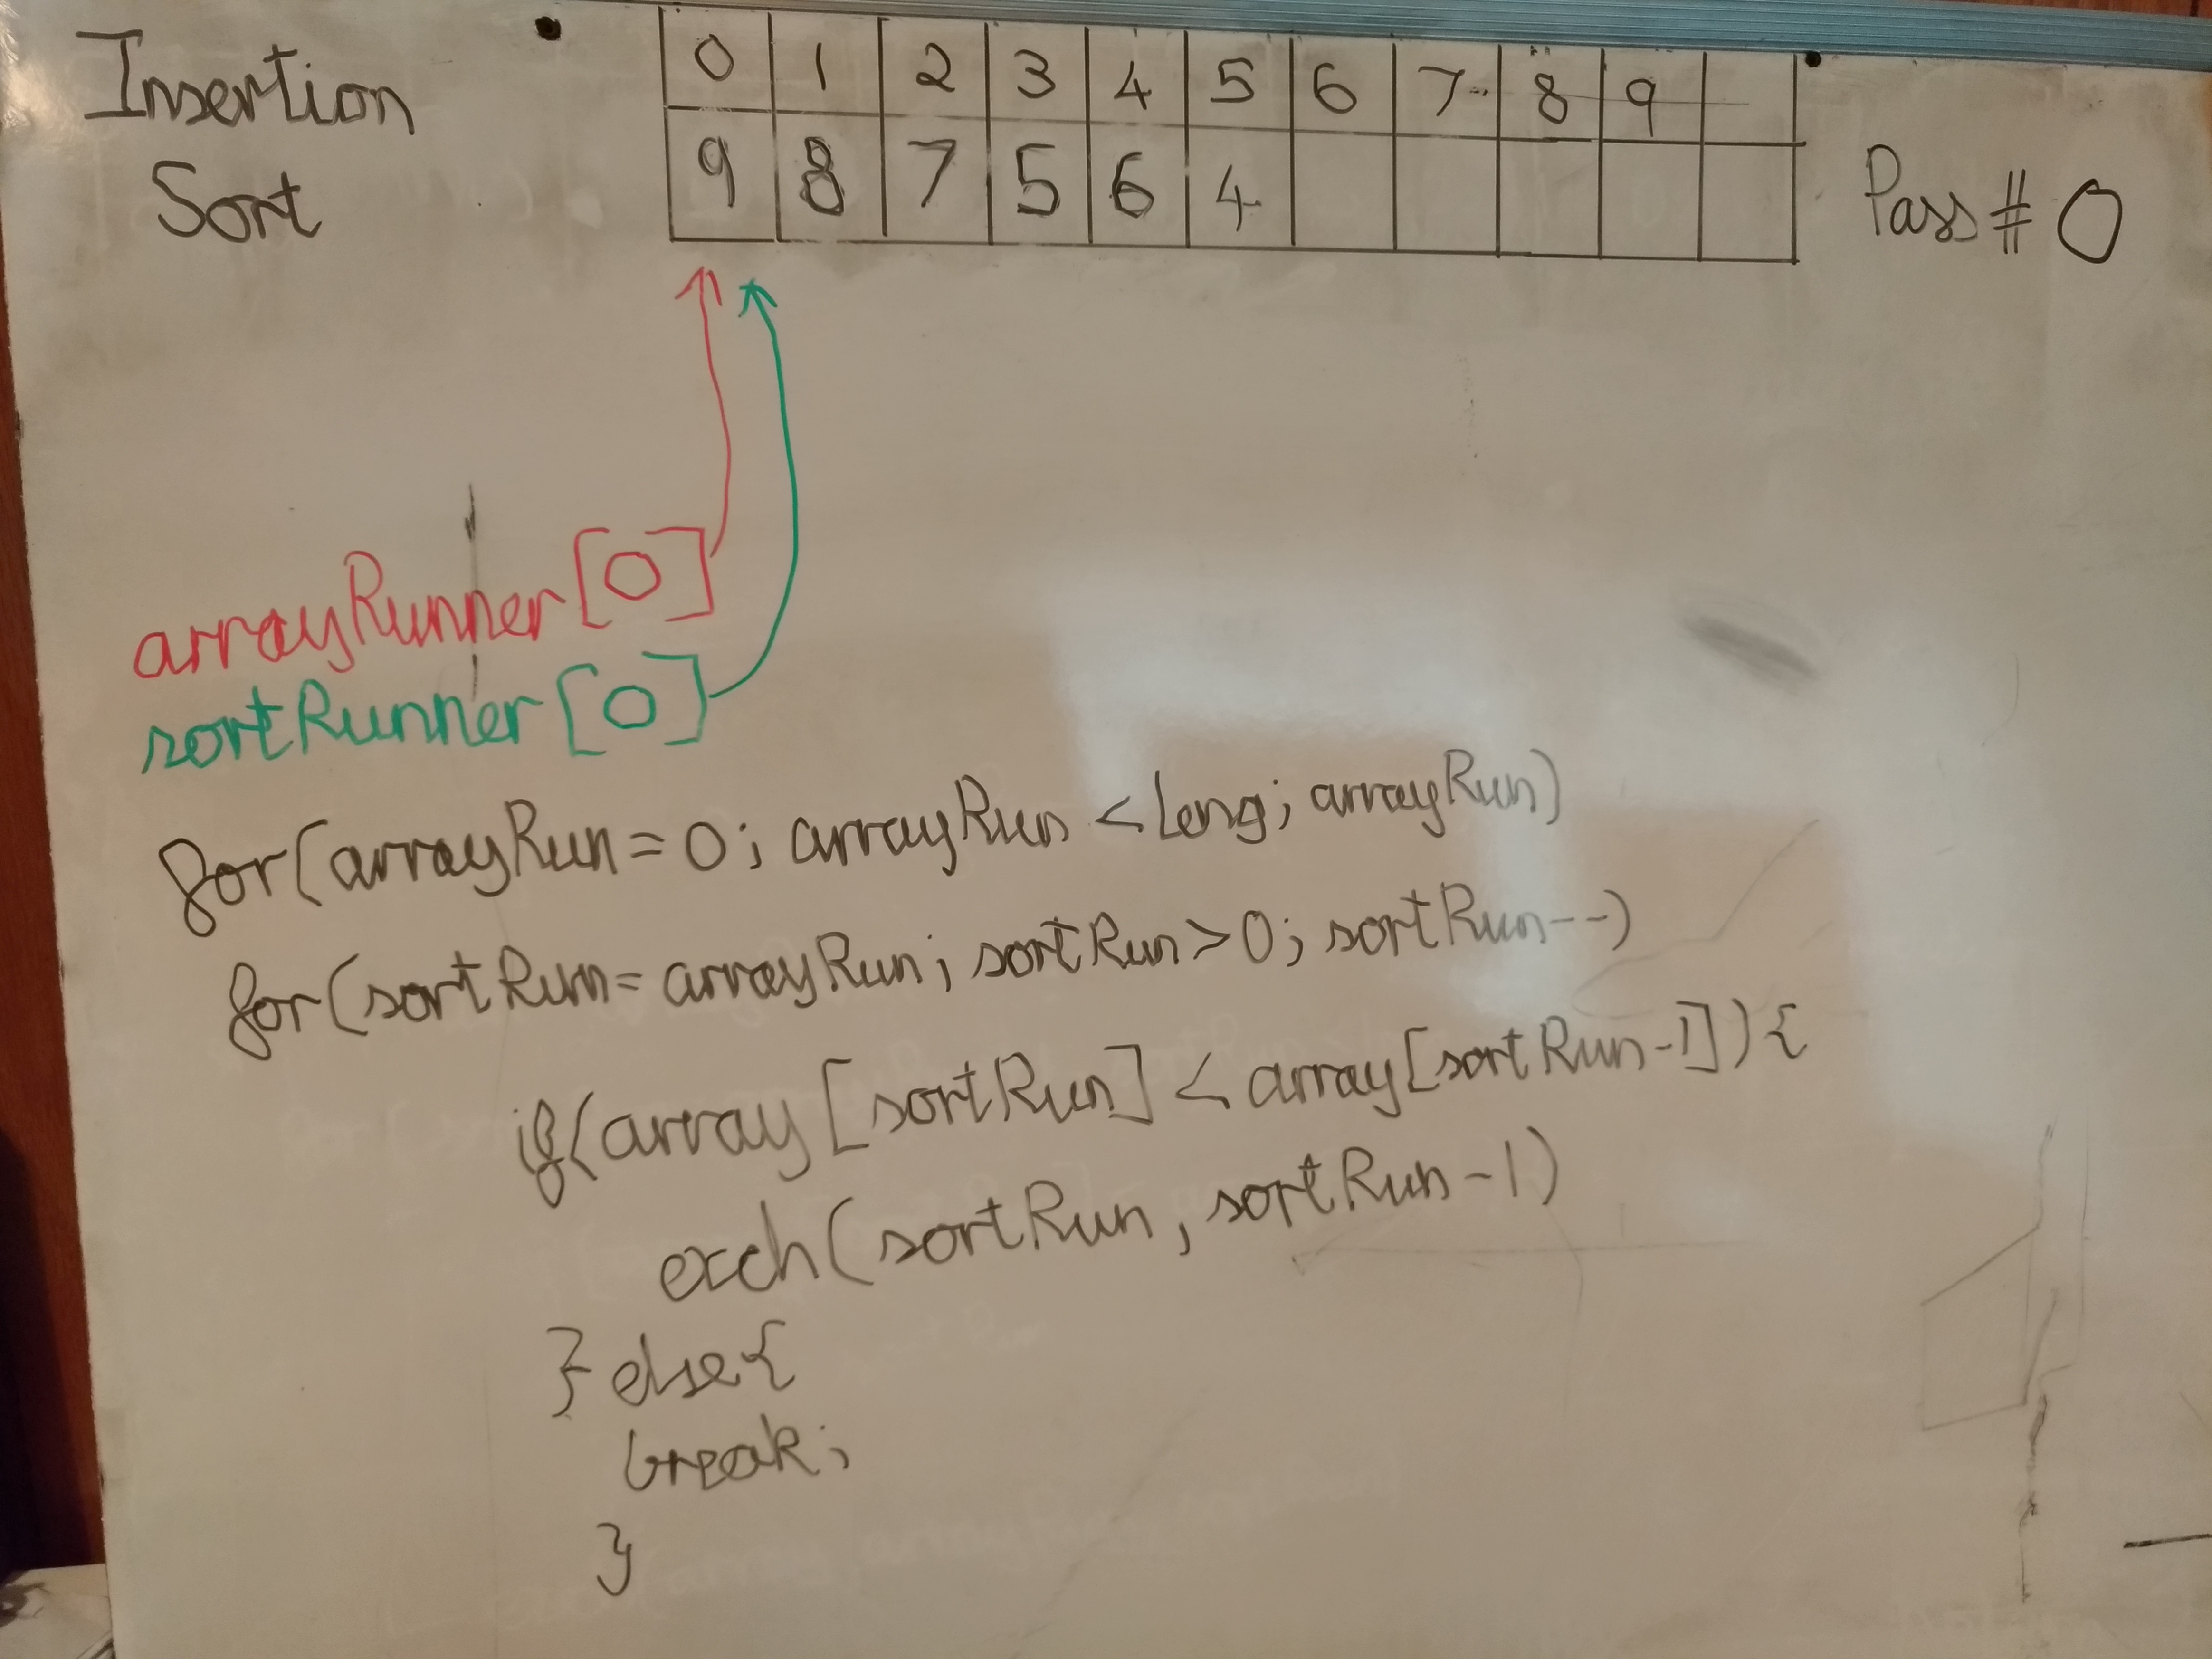 Insertion
Sort
0 1 2 3 4 5 6 7 8 9
9 8 7 5 6 4
Pass # 0
arrayRunner[0]
sortRunner[0]
for(arrayRun=0; arrayRun<leng; arrayRun)
for(sortRun=arrayRun; sortRun>0; sortRun--)
if(array[sortRun]<array[sortRun-1]){
exch(sortRun, sortRun-1)
} else{
break;
}